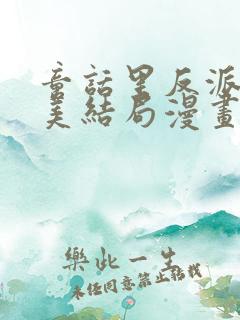 童話里反派
美結局漫畫
樂此一生
未經同意禁止轉載